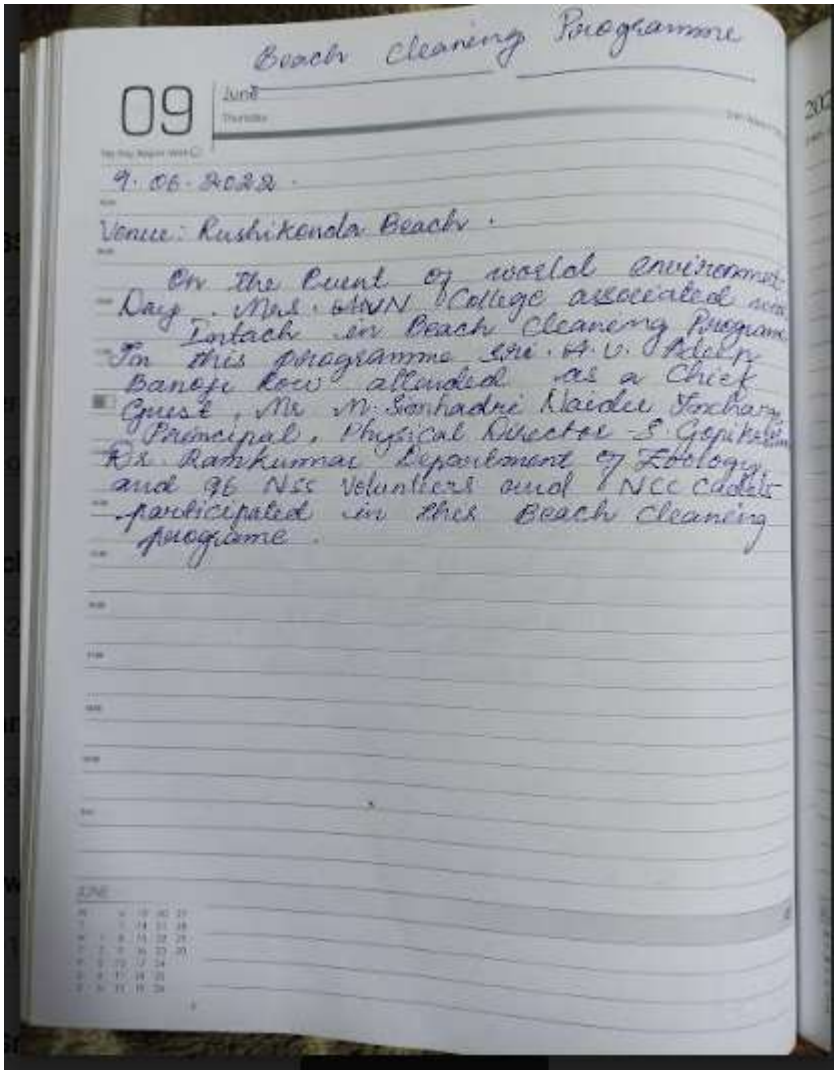 Beach Cleaning Programme
09
June
Thursday
9.06.2022.
Venue: Rushikonda Beach.
On the Event of world environmet
Day. Mrs. AVN College associated with
Intach in Beach Cleaning Programe
In this programme sri. A.V. Adeep
Banoji Row attended as a Chief
Guest, Mr M. Simhadri Naidu Incharge
Principal, Physical Director - S Gopi
Dr. Ramkumar Department of Zoology,
and 96 NSS Volunteers and NCC Cadets
participated in this Beach Cleaning
programe.
JUNE